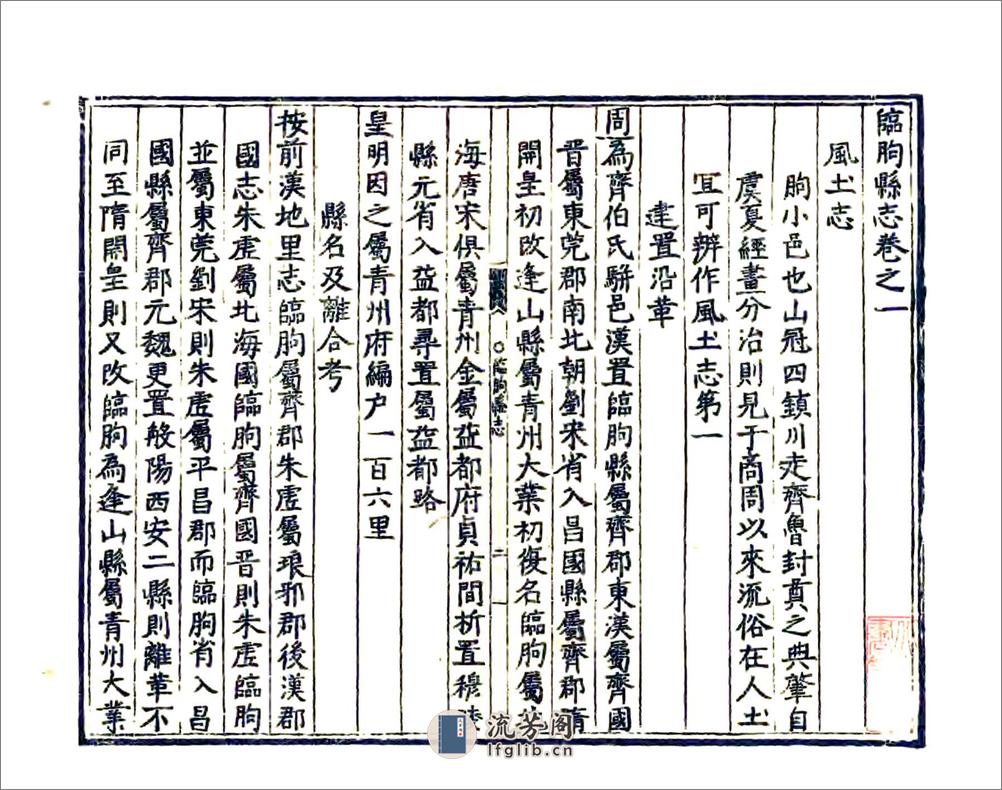 臨朐縣志卷之一
風土志
朐小邑也山冠四鎮川走齊魯封奠之典肇自
虞夏經畫分治則見于商周以來流俗在人土
宜可辨作風土志第一
建置沿革
周為齊伯氏駢邑漢置臨朐縣屬齊郡東漢屬齊國
晉屬東莞郡南北朝劉宋省入昌國縣屬齊郡隋
開皇初改逢山縣屬青州大業初復名臨朐屬
臨朐縣志
二
海唐宋俱屬青州金屬益都府貞祐間析置穆陵
縣元省入益都尋置屬益都路
皇明因之屬青州府編户一百六里
縣名及離合考
按前漢地里志臨朐屬齊郡朱虛屬琅邪郡後漢郡
國志朱虛屬北海國臨朐屬齊國晉則朱虛臨朐
並屬東莞劉宋則朱虛屬平昌郡而臨朐省入昌
國縣屬齊郡元魏更置般陽西安二縣則離革不
同至隋開皇則又改臨朐為逢山縣屬青州大業
流芳阁
lfglib.cn